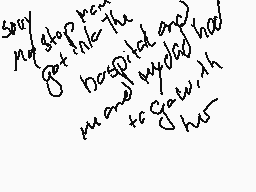 sorry
my stop mom
got in to the
hospital and
me and my dad had
to go with
her